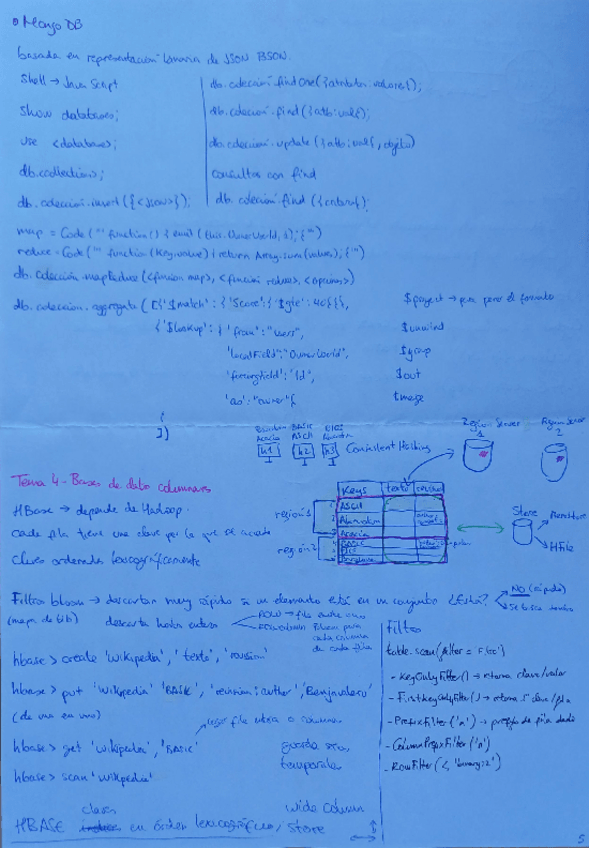 Mongo DB
basada en representación binaria de JSON BSON.
Shell → Java Script
show databases;
use <database>;
db.collections;
db.colección.insert({<JSON>});
db.colección.findOne({atributo: valores});
db.colección.find({atb:val});
db.colección.update({atb:val}, objeto)
consultas con find
db.colección.find({criterio})
map = Code(""" function() { emit(this.OwnerUserId, 1);}""")
reduce = Code(""" function(key, value) { return Array.sum(values);}""")
db.colección.mapReduce(<función map>, <función reduce>, <opciones>)
db.colección.aggregate([{'$match': {'Score': {'$gte': 40}}},
{'$lookup': { 'from': "users",
'localField': "OwnerUserId",
'foreignField': 'Id',
'as': "owner"}
}
])
$project → para el formato
$unwind
$group
$out
$merge
BASIC
ASCII
h1
h2
h3
Consistent Hashing
Region Server
1
Region Server
2
Tema 4 - Bases de dato columnares
HBase → depende de Hadoop.
cada fila tiene una clave por la que se accede
claves ordenadas lexicográficamente
región 1
región 2
Keys
texto
revisión
ASCII
BASIC
Store
MemStore
HFile
Filtros bloom → descartar muy rápido si un elemento está en un conjunto ¿Está?
NO (rápido)
Sí busca
(mapa de bits)
descarta
ROW → fila
ROWCOL
para
cada columna
de cada fila
hbase> create 'wikipedia', 'texto', 'revision'
hbase> put 'wikipedia' 'BASIC', 'revision:author',
(de uno en uno)
hbase> get 'wikipedia', 'BASIC'
fila entera o columna
guarda
temporales
hbase> scan 'wikipedia'
claves
wide column
HBASE en orden lexicográfico/ store
filtros
table.scan(filter = 'Filtro')
- KeyOnlyFilter() → retorna clave/valor
- FirstKeyOnlyFilter() → retorna 1º clave/fila
- PrefixFilter('n') → prefijo de fila dado
- ColumnPrefixFilter('n')
- RowFilter(<, 'binary:2')
5